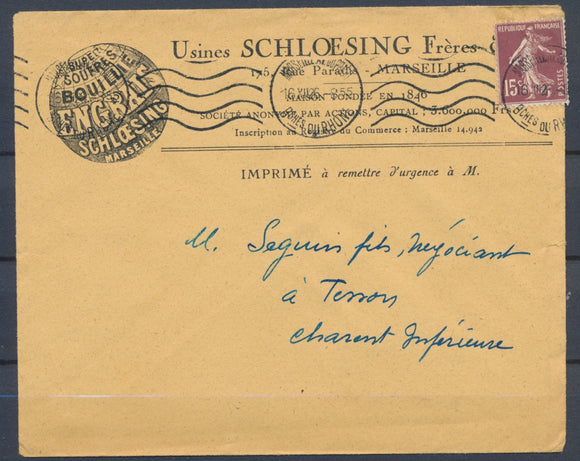 SOUFRE
BOUILL
ENGRAIS
SCHLŒSING
MARSEILLE
Usines SCHLŒSING Frères &
175, Rue Paradis - MARSEILLE
MAISON FONDÉE EN 1846
SOCIÉTÉ ANONYME PAR ACTIONS, CAPITAL : 3.000.000 Fr
Inscription au Registre du Commerce : Marseille 14.942
REPUBLIQUE FRANÇAISE
15c
POSTES
16 XII 26
BCHES DU RHONE
IMPRIMÉ à remettre d'urgence à M.
M. Seguin fils, négociant
à Tesson
Charent Inférieure